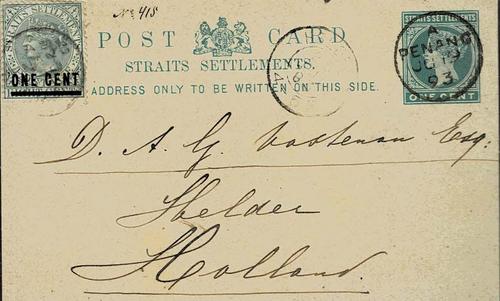 No 418
STRAITS SETTLEMENTS
ONE CENT
POST CARD
STRAITS SETTLEMENTS.
ADDRESS ONLY TO BE WRITTEN ON THIS SIDE.
STRAITS SETTLEMENTS
ONE CENT
A
PENANG
JU 19
93
D. A. G. Esq:
Helder
Holland.